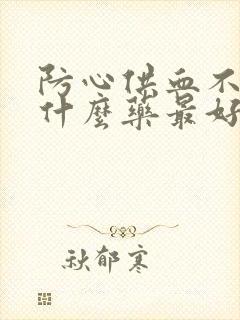 防心供血不
什麼藥最好
秋郁寒